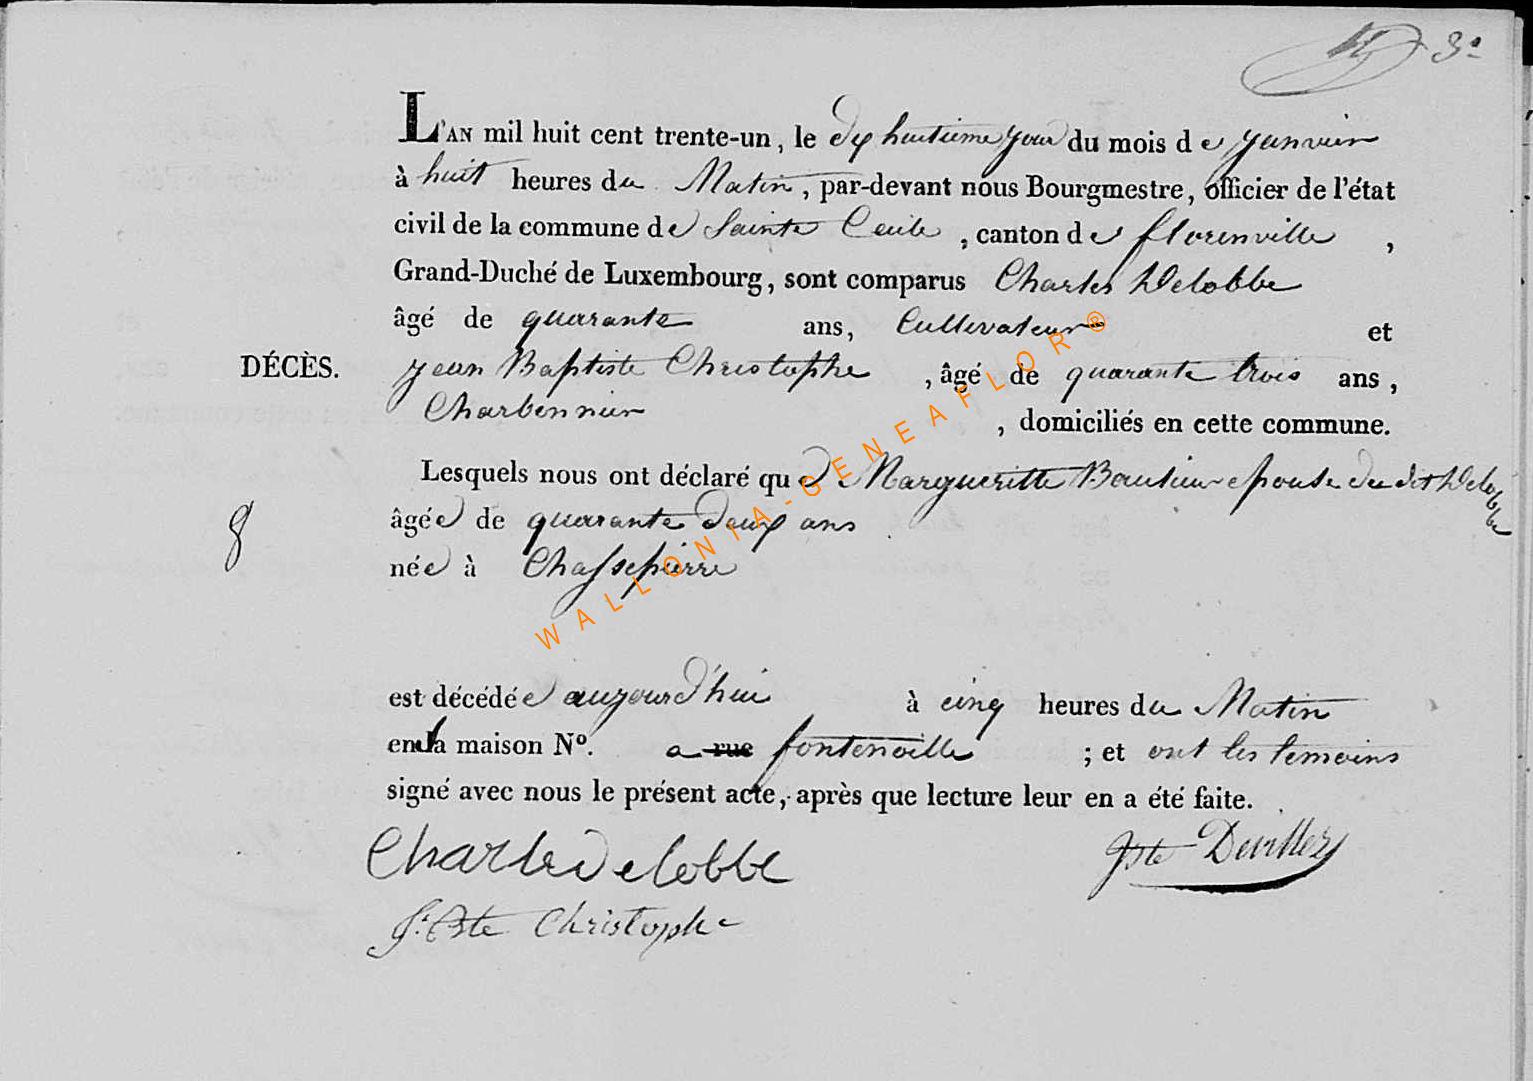 3e
L'AN mil huit cent trente-un, le dix huitieme jour du mois de janvier
à huit heures du Matin, par-devant nous Bourgmestre, officier de l'état
civil de la commune de Sainte Cecile, canton de florenville,
Grand-Duché de Luxembourg, sont comparus Charles Delobbe
âgé de quarante ans, Cultivateur et
DÉCÈS. jean Baptiste Christophe, âgé de quarante trois ans,
Charbonnier, domiciliés en cette commune.
Lesquels nous ont déclaré que Margueritte epouse du dit Delobbe
8 âgée de quarante deux ans
née à Chassepierre
est décédée aujourd'hui à cinq heures du Matin
en la maison No. a rue fontenoille ; et ont les temoins
signé avec nous le présent acte, après que lecture leur en a été faite.
Charle Delobbe
Jste Devillez
J. Bste Christophe
WALLONIA-GENEAFLOR®